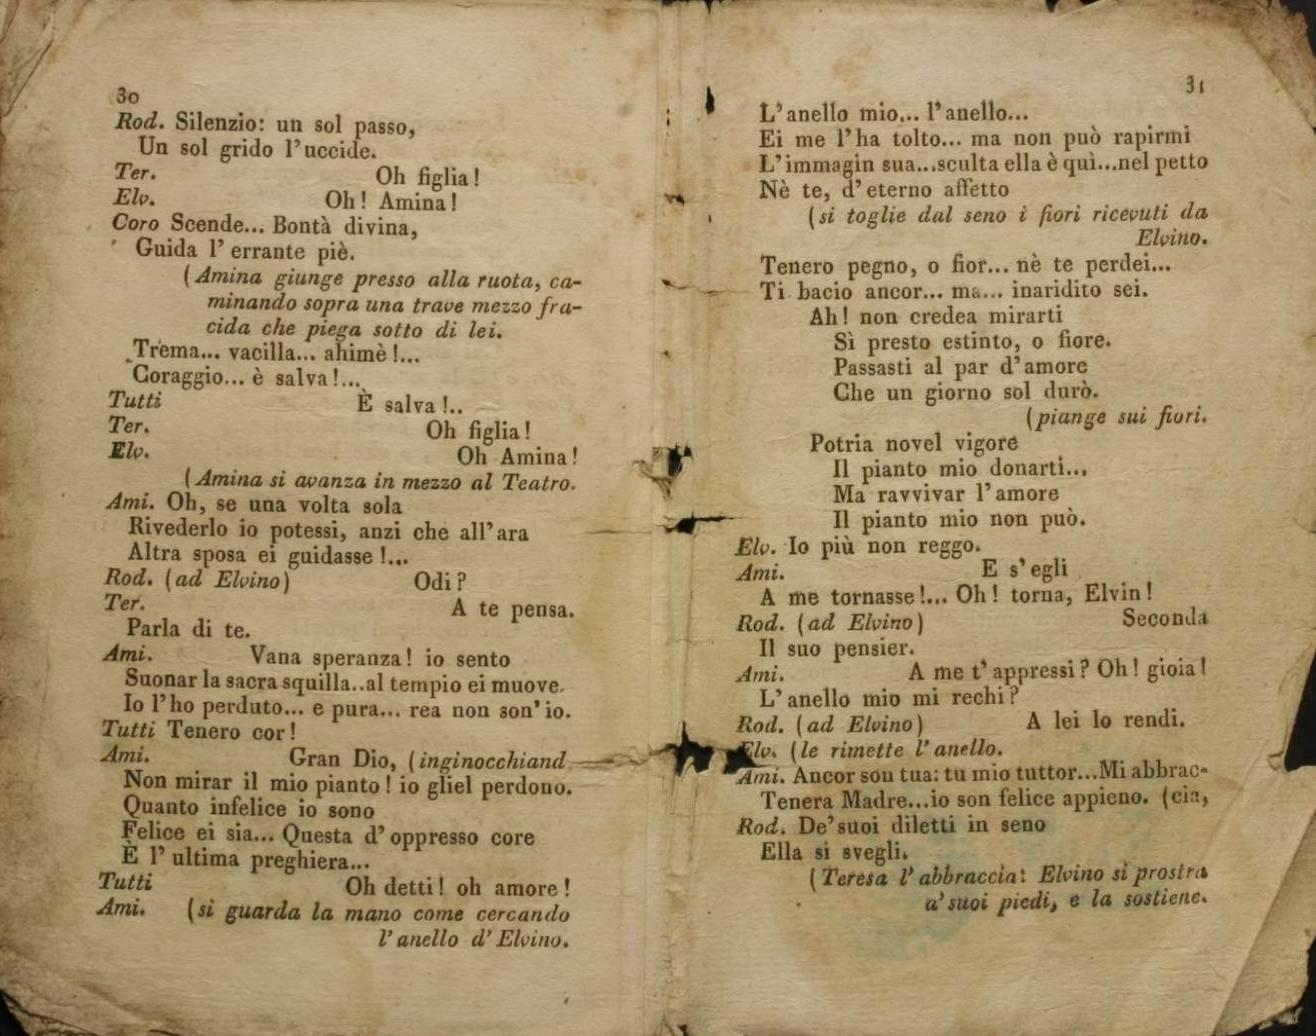 30
Rod. Silenzio: un sol passo,
Un sol grido l'uccide.
Ter. Oh figlia!
Elv. Oh! Amina!
Coro Scende... Bontà divina,
Guida l'errante piè.
(Amina giunge presso alla ruota, ca-
minando sopra una trave mezzo fra-
cida che piega sotto di lei.
Trema... vacilla... ahimè!...
Coraggio... è salva!...
Tutti È salva!..
Ter. Oh figlia!
Elv. Oh Amina!
(Amina si avanza in mezzo al Teatro.
Ami. Oh, se una volta sola
Rivederlo io potessi, anzi che all'ara
Altra sposa ei guidasse!...
Rod. (ad Elvino) Odi?
Ter. A te pensa.
Parla di te.
Ami. Vana speranza! io sento
Suonar la sacra squilla..al tempio ei muove.
Io l'ho perduto... e pura... rea non son'io.
Tutti Tenero cor!
Ami. Gran Dio, (inginocchiand
Non mirar il mio pianto! io gliel perdono.
Quanto infelice io sono
Felice ei sia... Questa d'oppresso core
È l'ultima preghiera...
Tutti Oh detti! oh amore!
Ami. (si guarda la mano come cercando
l'anello d'Elvino.
31
L'anello mio... l'anello...
Ei me l'ha tolto... ma non può rapirmi
L'immagin sua...sculta ella è quì...nel petto
Nè te, d'eterno affetto
(si toglie dal seno i fiori ricevuti da
Elvino.
Tenero pegno, o fior... nè te perdei...
Ti bacio ancor... ma... inaridito sei.
Ah! non credea mirarti
Sì presto estinto, o fiore.
Passasti al par d'amore
Che un giorno sol durò.
(piange sui fiori.
Potria novel vigore
Il pianto mio donarti...
Ma ravvivar l'amore
Il pianto mio non può.
Elv. Io più non reggo.
Ami. E s'egli
A me tornasse!... Oh! torna, Elvin!
Rod. (ad Elvino) Seconda
Il suo pensier.
Ami. A me t'appressi? Oh! gioia!
L'anello mio mi rechi?
Rod. (ad Elvino) A lei lo rendi.
Elv. (le rimette l'anello.
Ami. Ancor son tua: tu mio tuttor...Mi abbrac-
Tenera Madre...io son felice appieno. (cia,
Rod. De'suoi diletti in seno
Ella si svegli.
(Teresa l'abbraccia: Elvino si prostra
a'suoi piedi, e la sostiene.